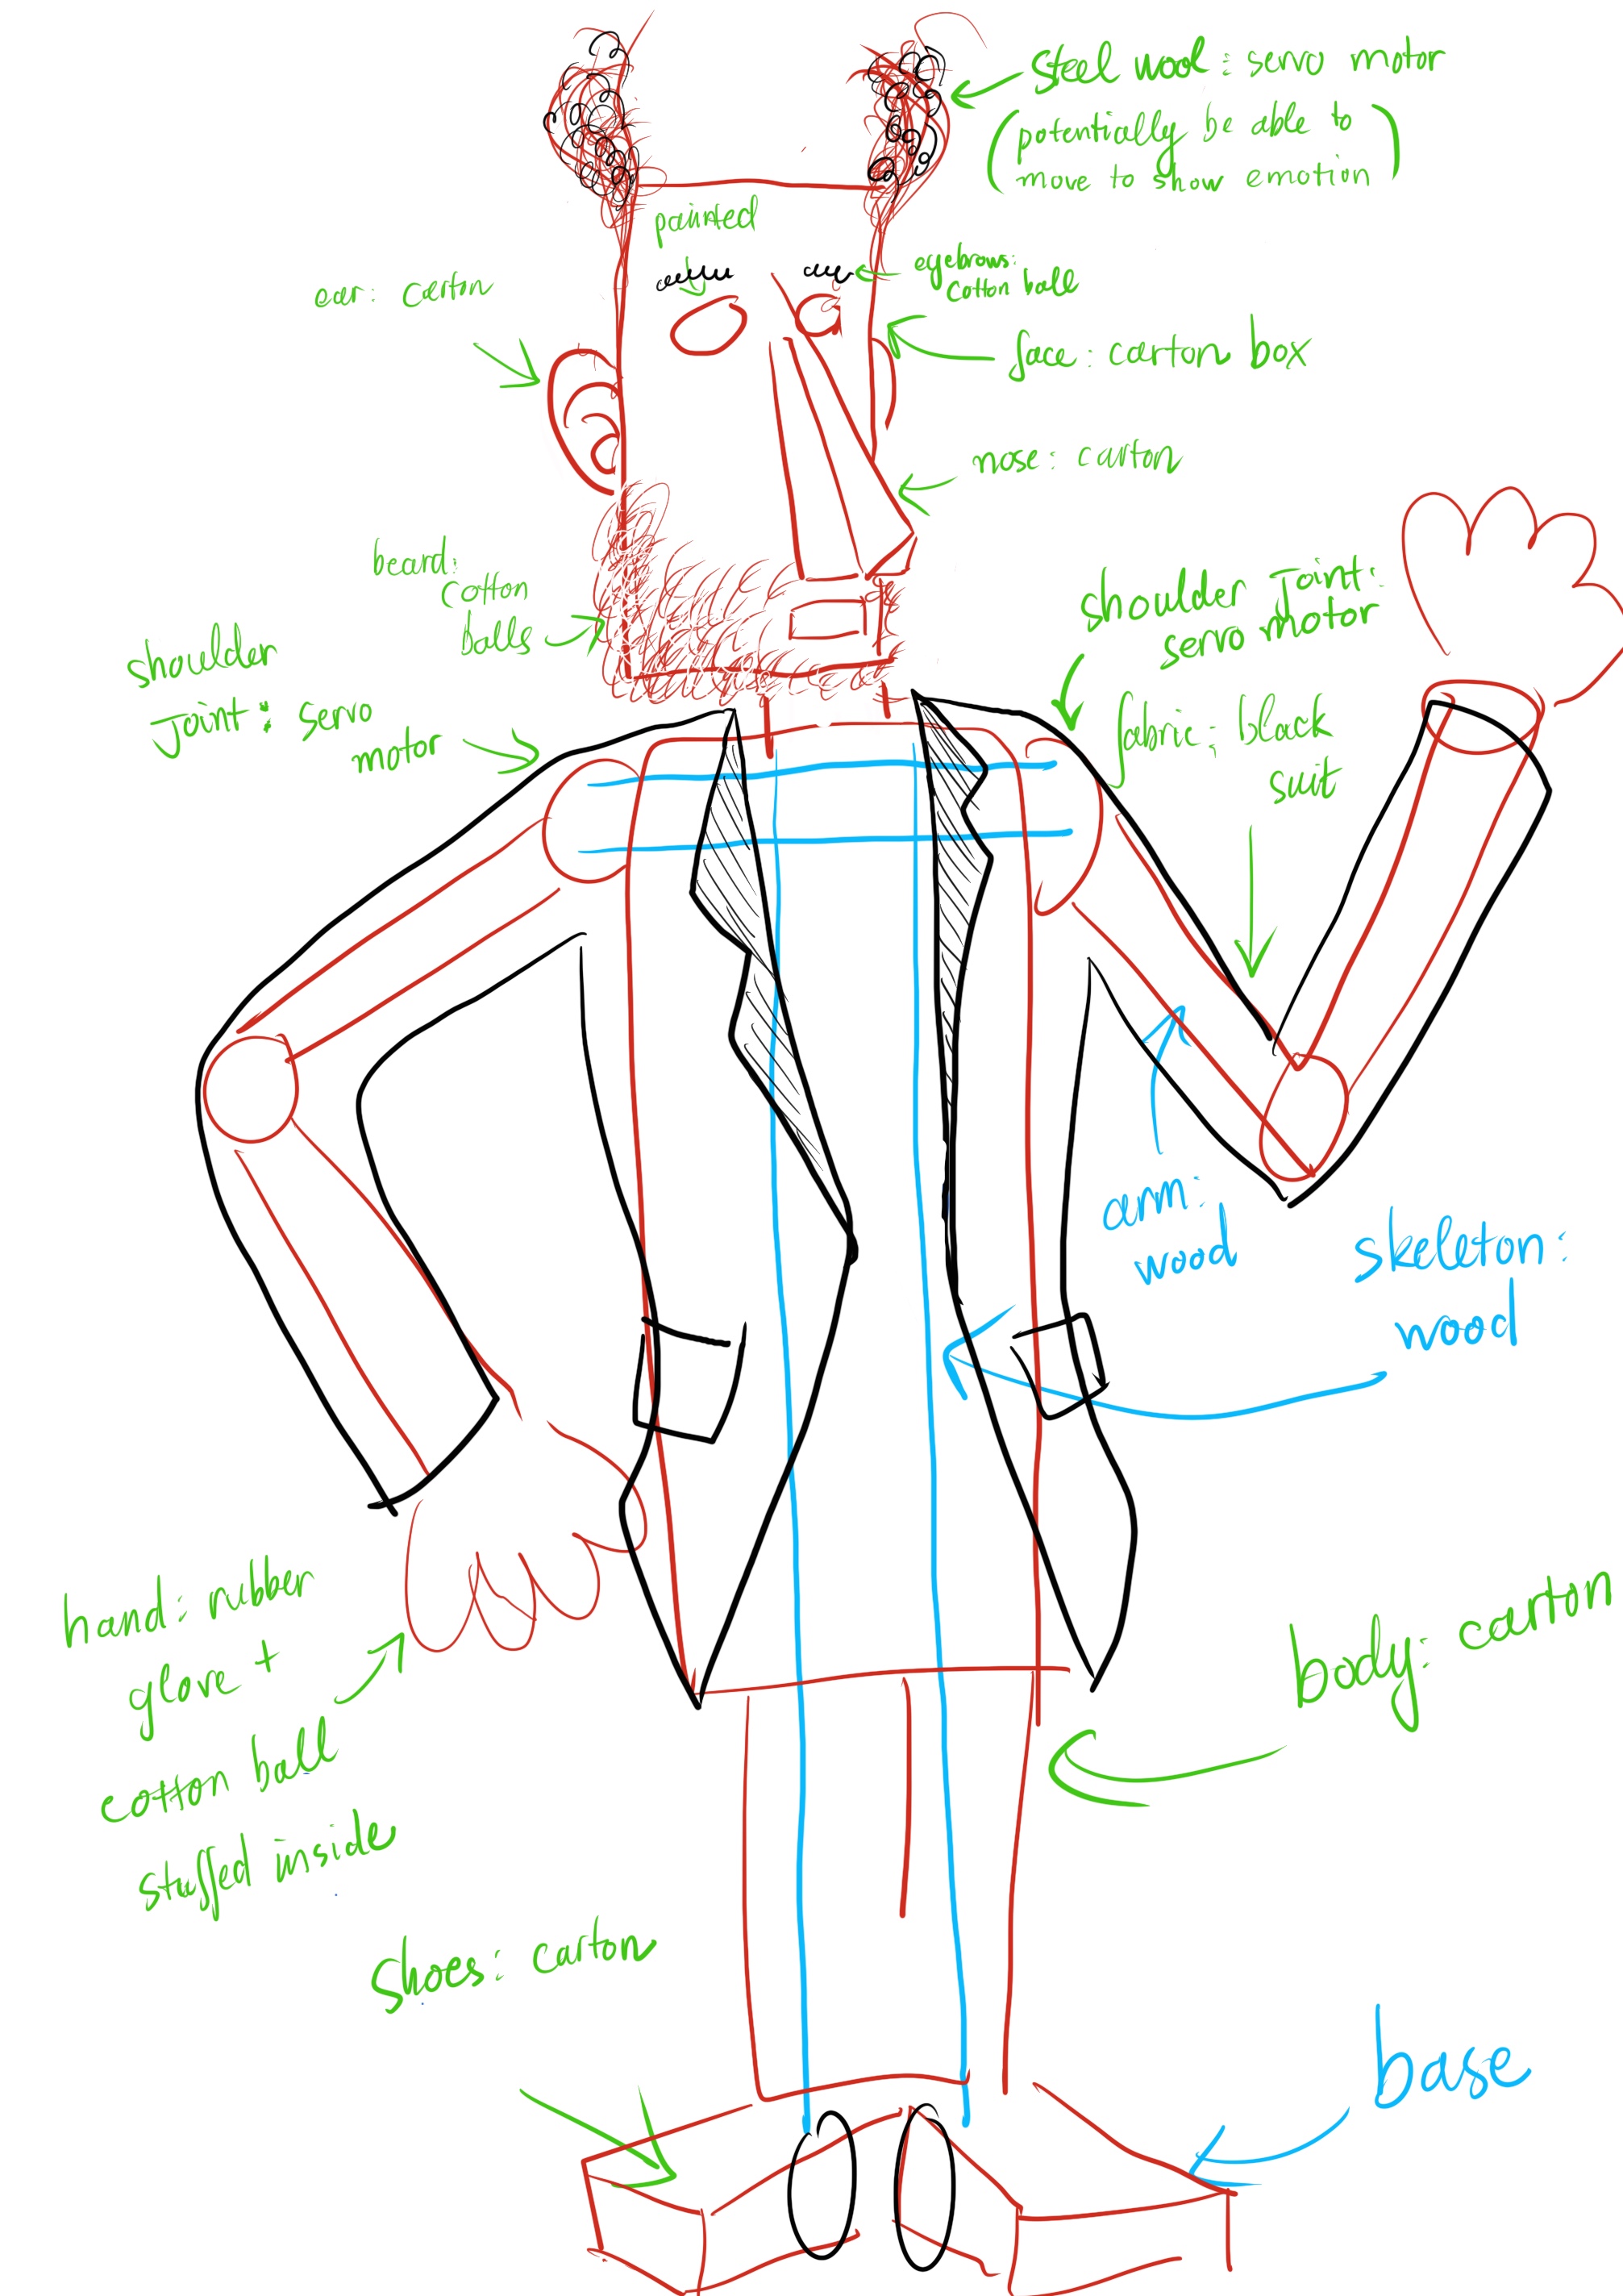 steel wool : servo motor
(potentially be able to
move to show emotion)
painted
eyebrows:
cotton ball
ear: carton
face: carton box
nose: carton
beard:
cotton
balls
shoulder Joint:
servo motor
shoulder
Joint: servo
motor
fabric: black
suit
arm:
wood
skeleton:
wood
hand: rubber
glove +
cotton ball
stuffed inside
body: carton
shoes: carton
base